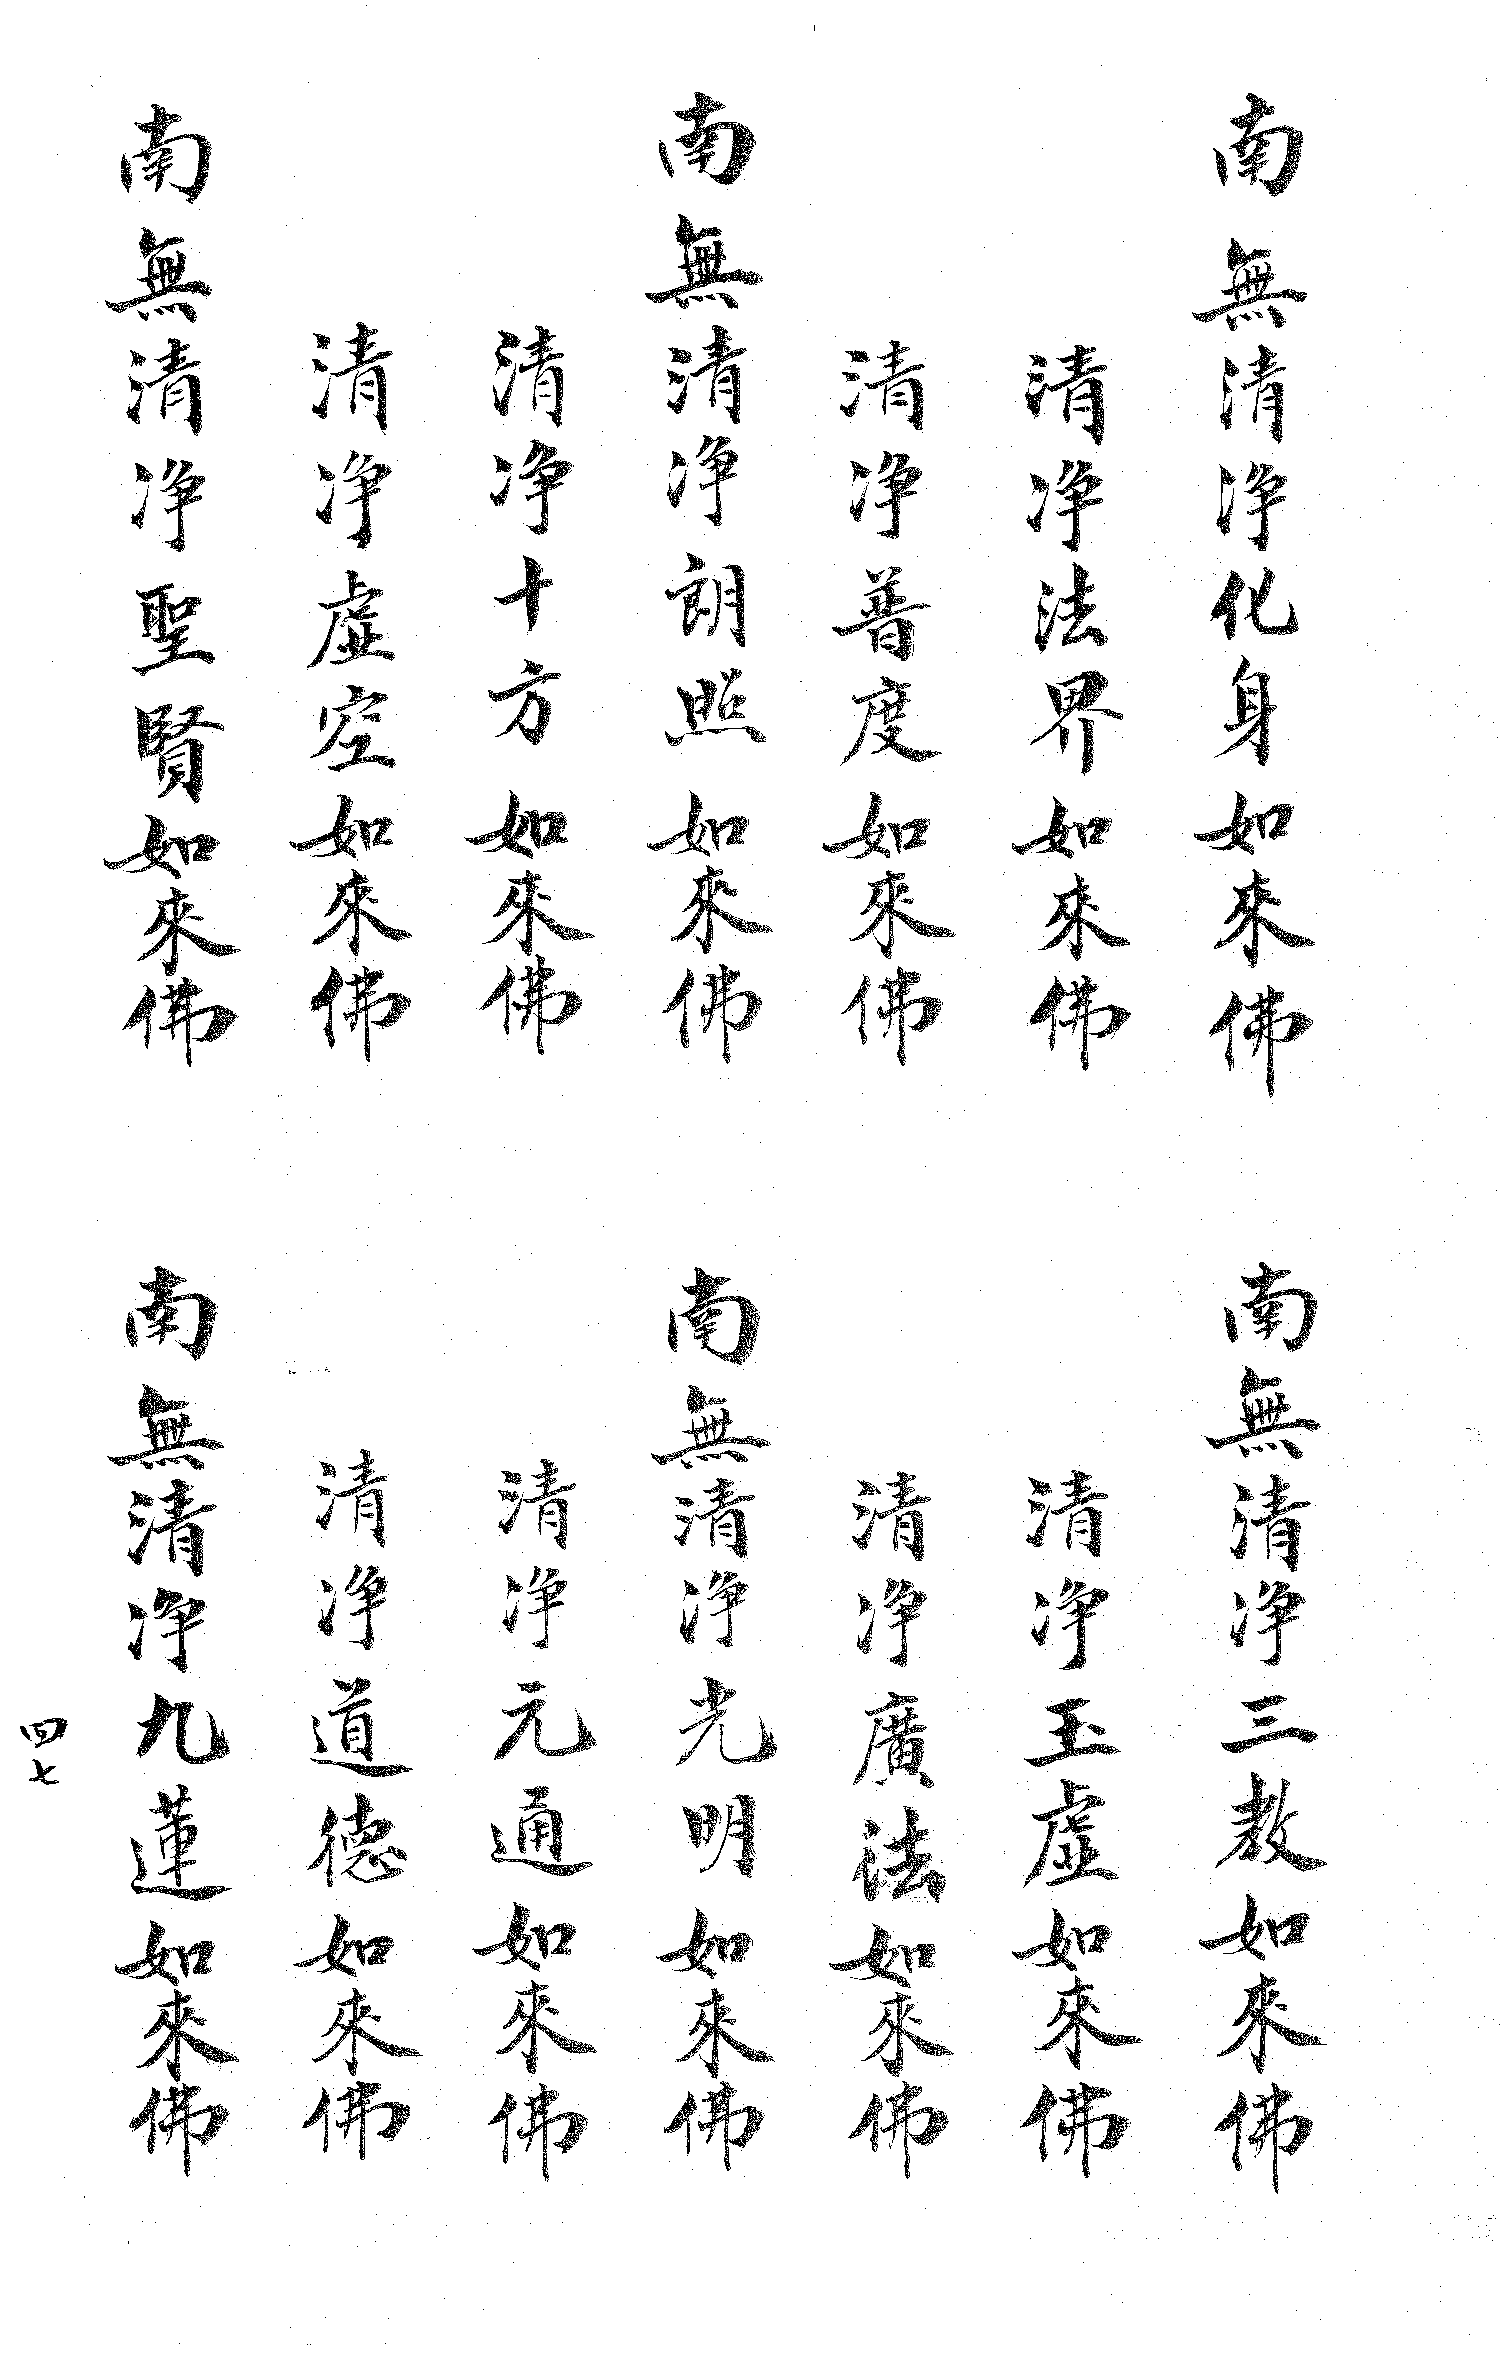 南無清净化身如來佛
南無清净三教如來佛
清净法界如來佛
清净玉虚如來佛
清净普度如來佛
清净廣法如來佛
南無清净朗照如來佛
南無清净光明如來佛
清净十方如來佛
清净元通如來佛
清净虚空如來佛
清净道德如來佛
南無清净聖賢如來佛
南無清净九蓮如來佛
四七